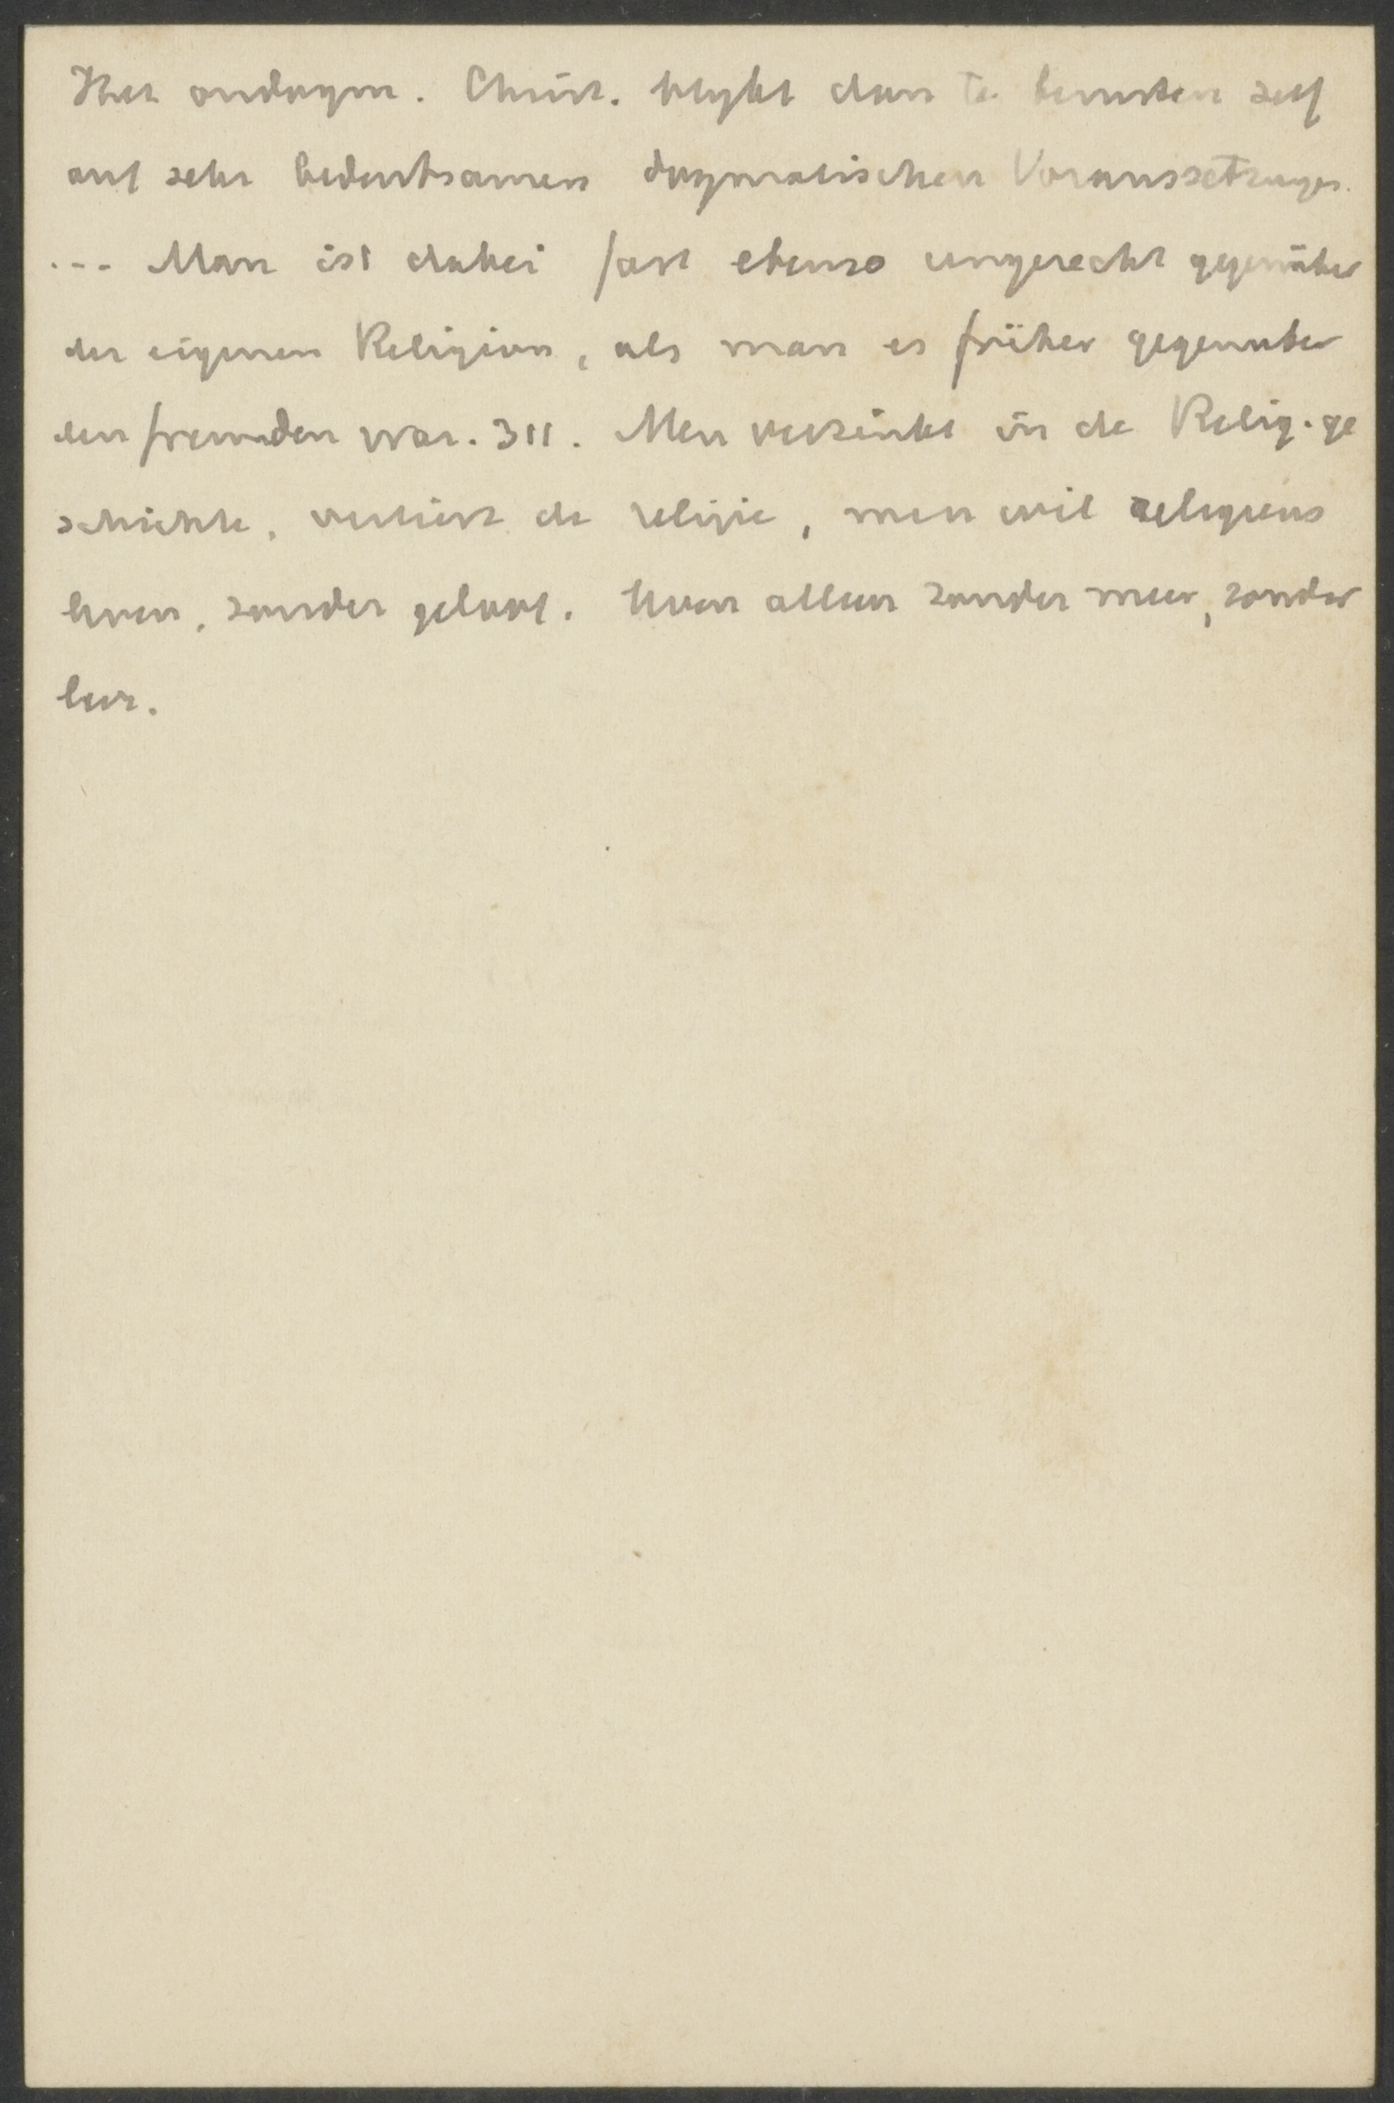 Het ondogm. Christ. blijkt dan te berusten zelf
auf sehr bedeutsamen dogmatischen Voraussetzungen.
... Man ist dabei fast ebenso ungerecht gegenüber
der eigenen Religion, als man es früher gegenüber
den fremden war. 311. Men verzinkt in de Relig. ge
schichte, verliest de religie, men wil religieus
leven, zonder geloof. leven alleen zonder meer, zonder
leer.